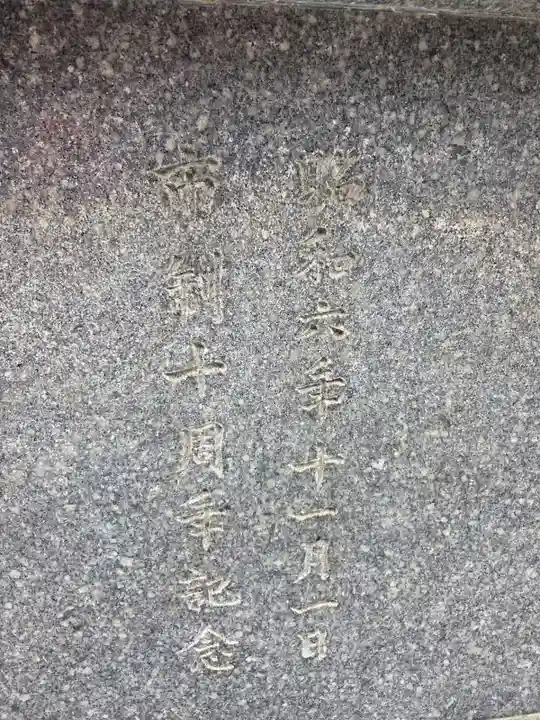 昭和六年十一月一日
市制十周年記念